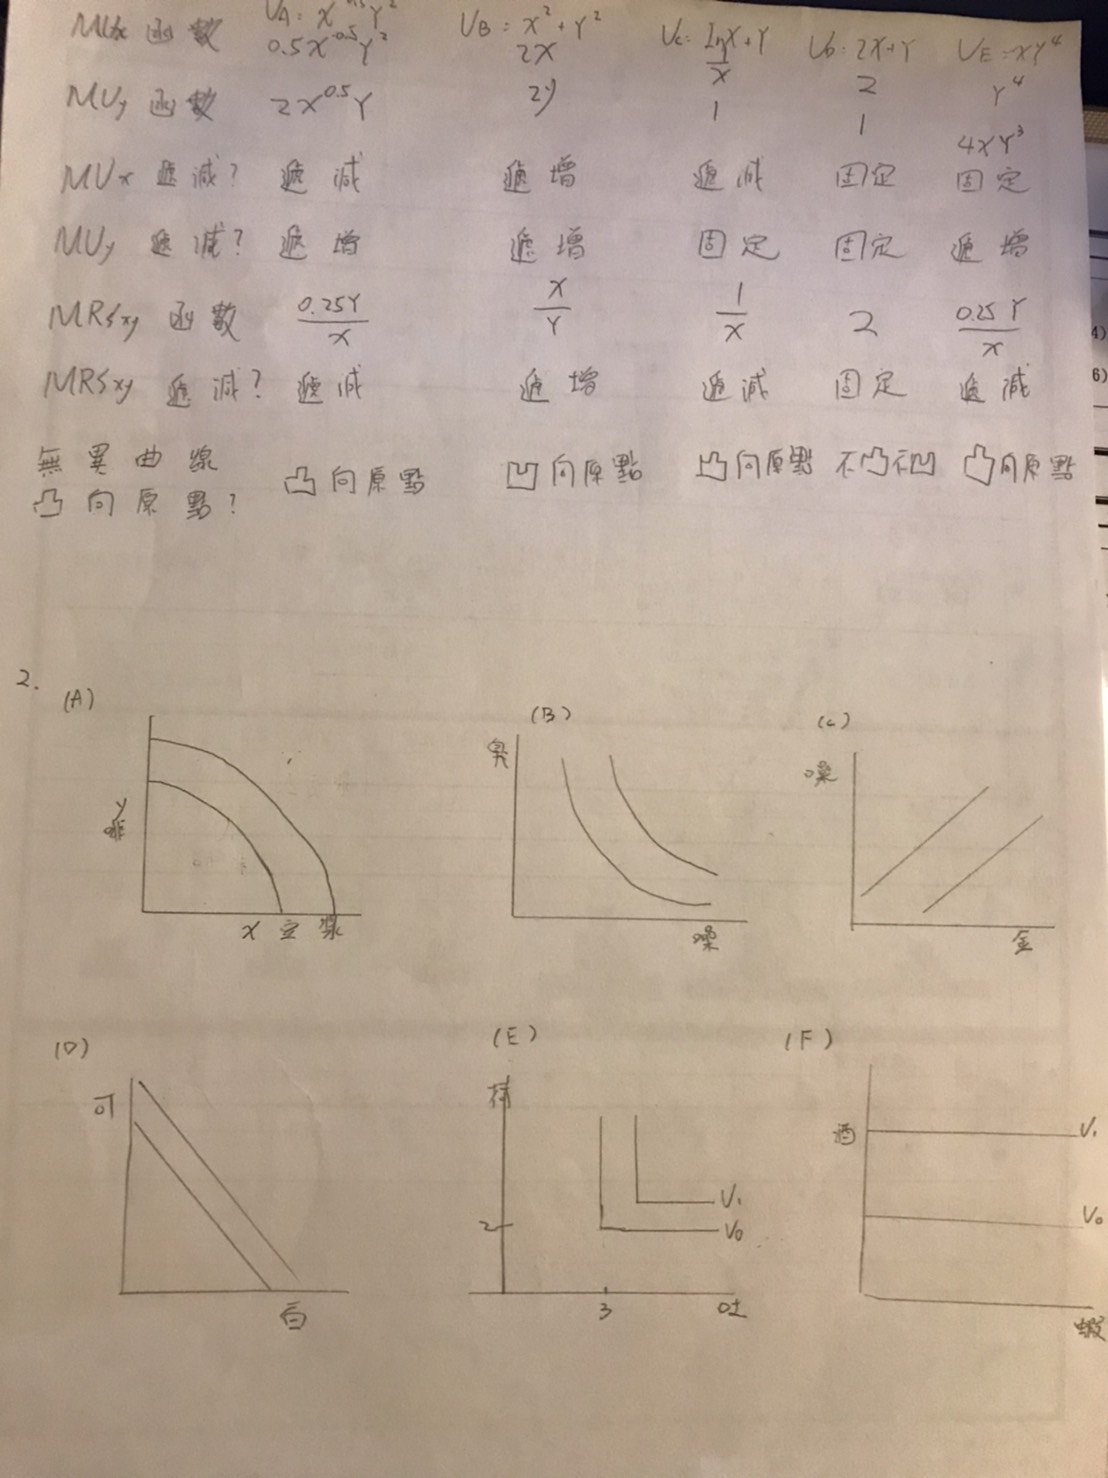 U_A = X^0.5 Y^2 U_B = X^2 + Y^2 U_C = lnX + Y U_D = 2X+Y U_E = XY^4
MUx 函數 0.5X^-0.5 Y^2 2X 1/X 2 Y^4
MUy 函數 2X^0.5 Y 2y 1 1 4XY^3
MUx 遞減? 遞減 遞增 遞減 固定 固定
MUy 遞減? 遞增 遞增 固定 固定 遞增
MRSxy 函數 0.25Y/X X/Y 1/X 2 0.25Y/X
MRSxy 遞減? 遞減 遞增 遞減 固定 遞減
無異曲線
凸向原點? 凸向原點 凹向原點 凸向原點 不凸不凹 凸向原點
2.
(A) (B) (C)
臭 噪
Y
啡
X 立 噪 金
(D) (E) (F)
可 酒 U1
U1
2 U0 U0
白 3 吐 蝦